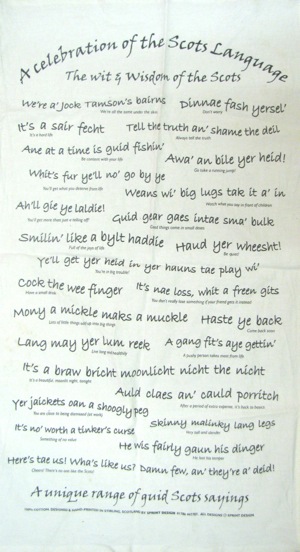 A celebration of the Scots Language
The wit & Wisdom of the Scots
We're a' Jock Tamson's bairns
We're all the same under the skin
Dinnae fash yersel'
Don't worry
It's a sair fecht
It's a hard life
Tell the truth an' shame the deil
Always tell the truth
Ane at a time is guid fishin'
Be content with your life
Awa' an bile yer heid!
Go take a running jump!
Whit's fur ye'll no' go by ye
You'll get what you deserve from life
Weans wi' big lugs tak it a' in
Watch what you say in front of children
Ah'll gie ye laldie!
You'll get more than just a telling off!
Guid gear gaes intae sma' bulk
Good things come in small doses
Smilin' like a bylt haddie
Full of the joys of life
Haud yer wheesht!
Be quiet!
Ye'll get yer heid in yer hauns tae play wi'
You're in big trouble!
Cock the wee finger
Have a small drink
It's nae loss, whit a freen gits
You don't really lose something if your friend gets it instead!
Mony a mickle makes a muckle
Lots of little things add up into big things
Haste ye back
Come back soon
Lang may yer lum reek
Live long and healthily
A gang fit's aye gettin'
A pushy person takes more from life
It's a braw bricht moonlicht nicht the nicht
It's a beautiful, moonlit night, tonight
Auld claes an' cauld porritch
After a period of extra expense, it's back to basics
Yer jaickets oan a shoogly peg
You are close to being dismissed (at work)
Skinny malinky lang legs
Very tall and slender
It's no' worth a tinker's curse
Something of no value
He wis fairly gaun his dinger
He lost his temper
Here's tae us! Wha's like us? Damn few, an' they're a' deid!
Cheers! There's no one like the Scots!
A unique range of guid Scots sayings